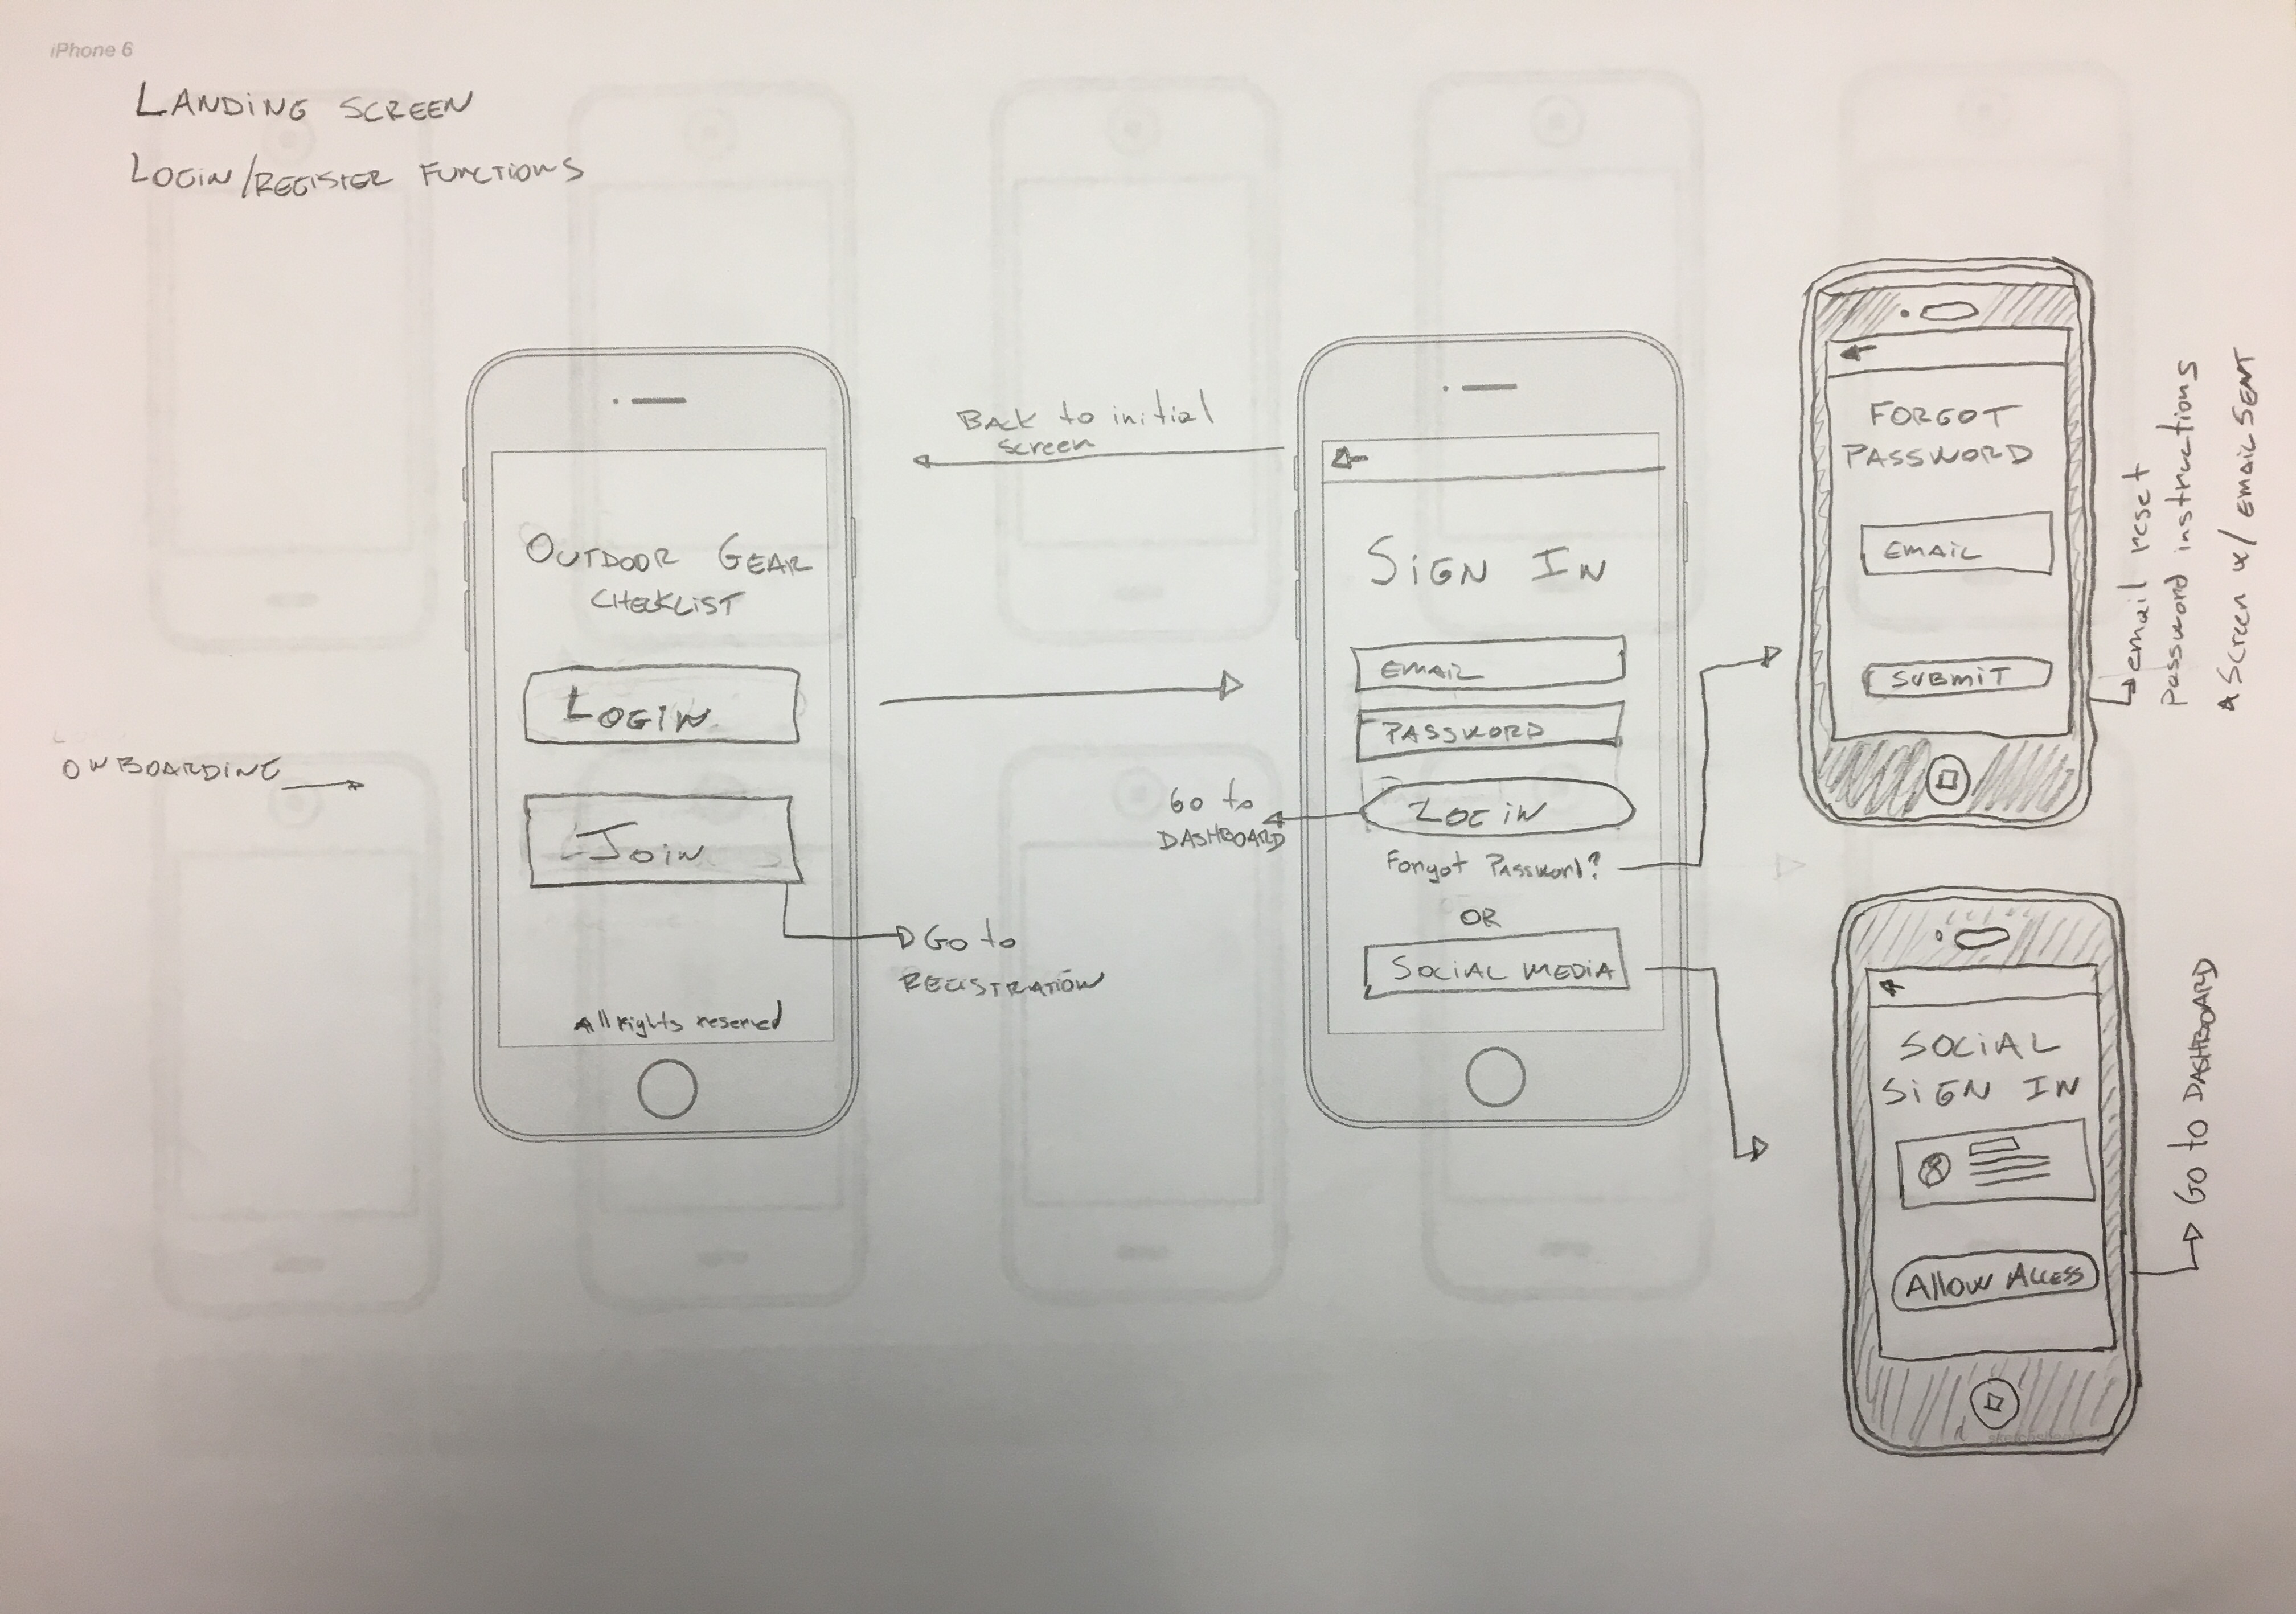 iPhone 6
LANDING SCREEN
LOGIN/REGISTER FUNCTIONS
ONBOARDING
OUTDOOR GEAR
CHECKLIST
LOGIN
JOIN
All rights reserved
Go to
REGISTRATION
BACK to initial
screen
SIGN IN
EMAIL
PASSWORD
LOGIN
Go to
DASHBOARD
Forgot Password?
OR
SOCIAL MEDIA
FORGOT
PASSWORD
EMAIL
SUBMIT
email reset
password instructions
Screen w/ EMAIL SENT
SOCIAL
SIGN IN
Allow Access
Go to DASHBOARD